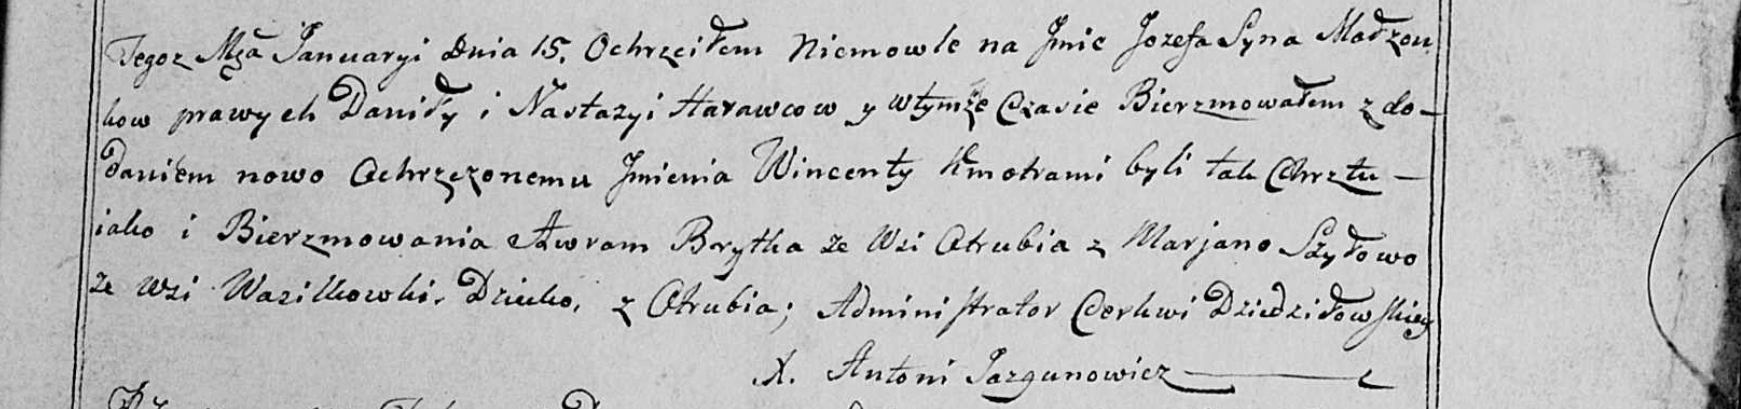 Tegoz Mca Januaryi dnia 15. Ochrzciłem Niemowle na Jmie Jozefa Syna Madzon
kow prawych Daniły i Nastazyi Harawcow y wtymże Czasie Bierzmowałem z do-
daniem nowo Ochrzczonemu Jmienia Wincenty Kmotrami byli tak Chrztu —
iako i Bierzmowania Awram Brytka ze Wsi Otrubia z Marjano Szyłowo
ze Wsi Wasilkowki. z Otrubia; Administrator Cerkwi Dziedziłowskiey
X. Antoni Jazgunowicz